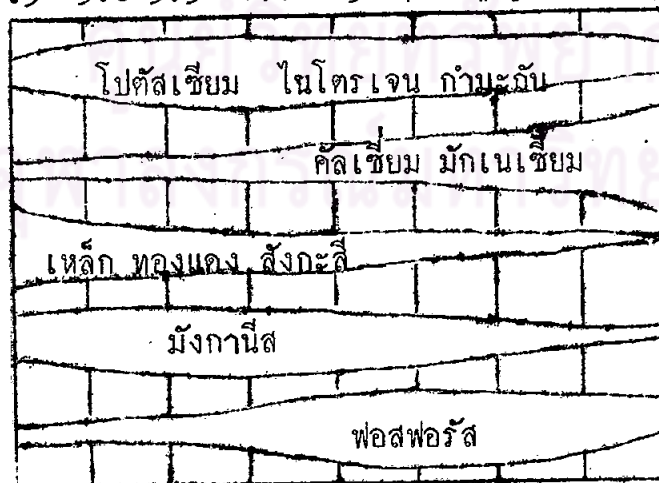 โปตัสเซียม ไนโตรเจน กำมะถัน
คัลเซี่ยม มักเนเซี่ยม
เหล็ก ทองแดง สังกะสี
มังกานีส
ฟอสฟอรัส